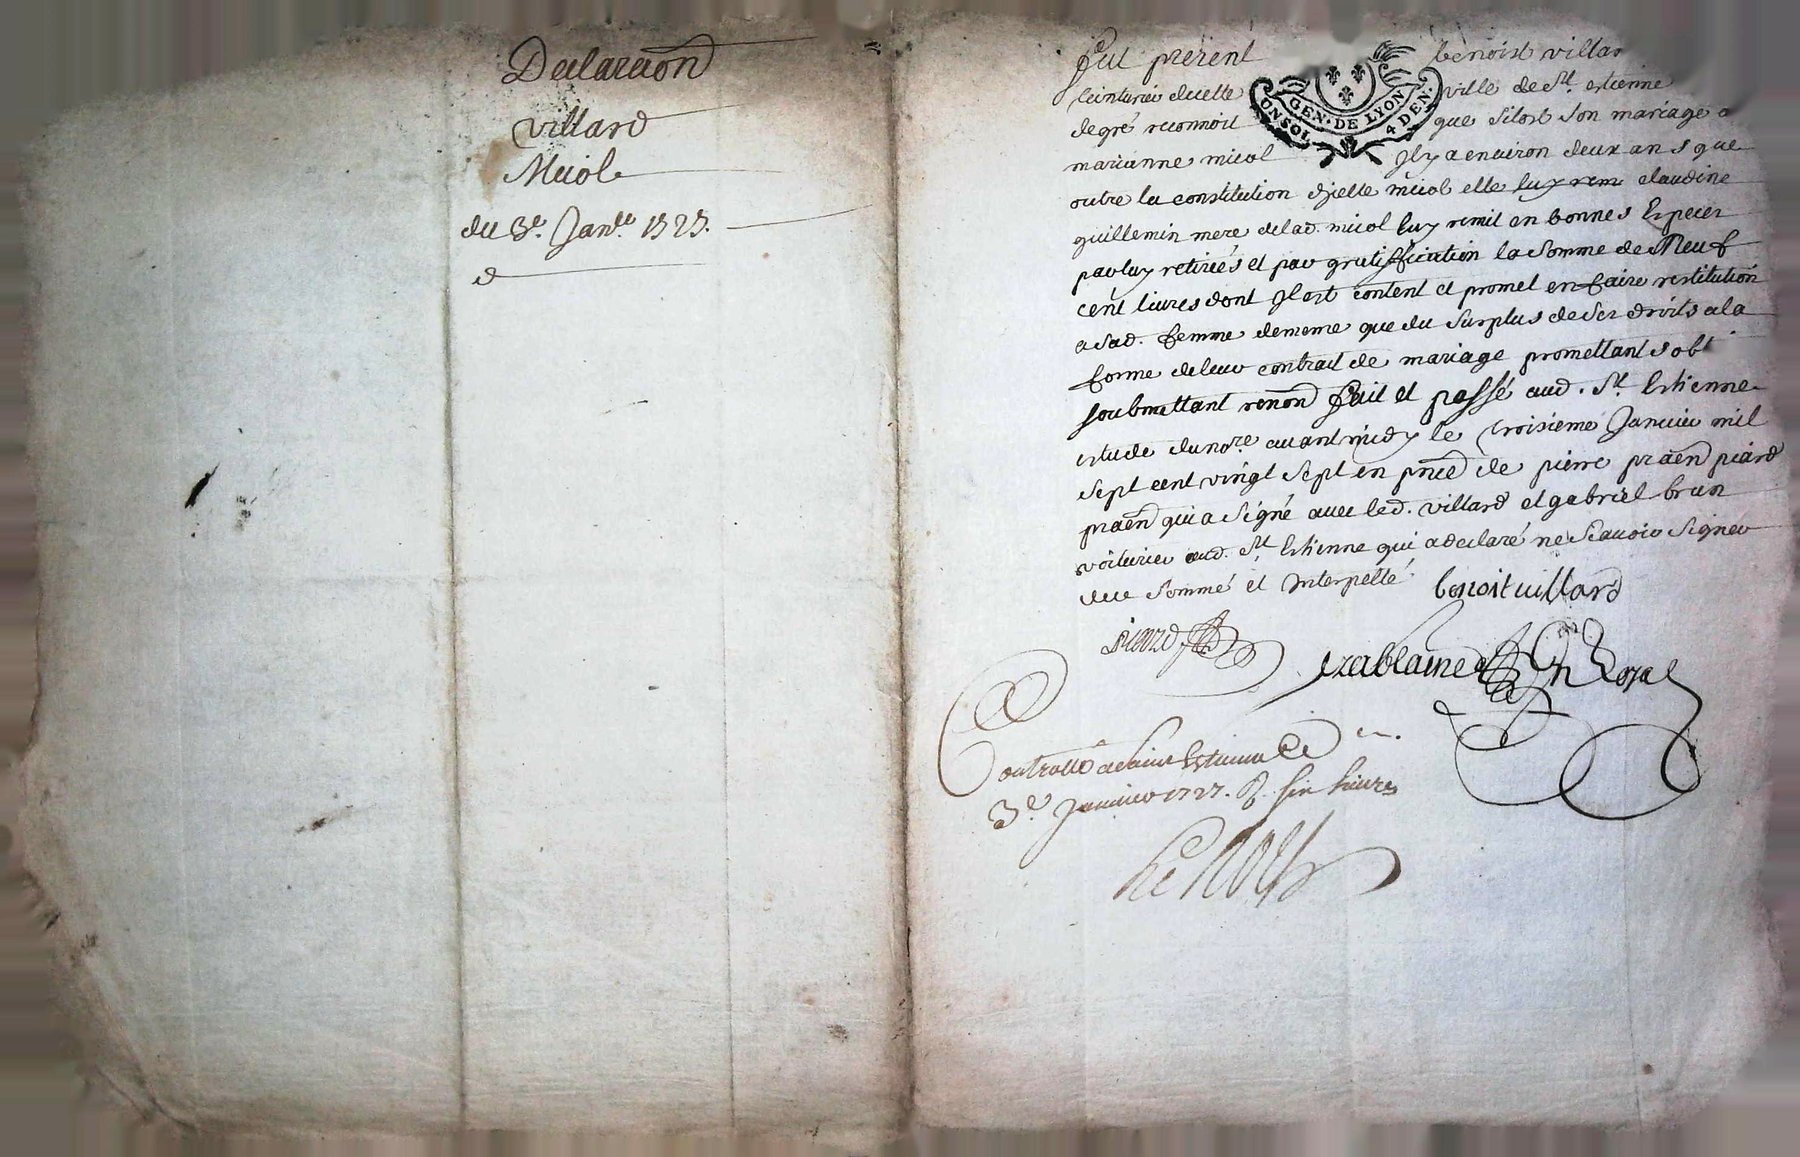 Declaraõn
Villard
Micol
du 3e. Janer. 1727.
Fut présent benoist villar
teinturier dicelle ville de St. estienne
de gré reconnoit que sitost son mariage a
marianne micol Jl y a environ deux ans que
outre la constitution djcelle micol elle luy remi claudine
guillemin mere de lad. micol luy remit en bonnes Especes
par luy retirées et par gratification la somme de Neuf
cent livres dont Jl est content et promet en faire restitution
a sad. femme de meme que du surplus de ses droits a la
forme de leur contrait de mariage promettant obt
soubmettant renonõ fait et passé aud. St. Estienne
estude du nore. avant midy le troisieme Janvier mil
sept cent vingt sept en pnce de pierre piard
praẽn qui a signé avec led. villard et gabriel brun
voiturier aud. St. Estienne qui a declaré ne scavoir signer
de ce sommé et Interpellé benoit villard
piard
GEN. DE LYON
4 DEN.
Controllé a Saint Estienne Le
3e Janvier 1727. R. six livres